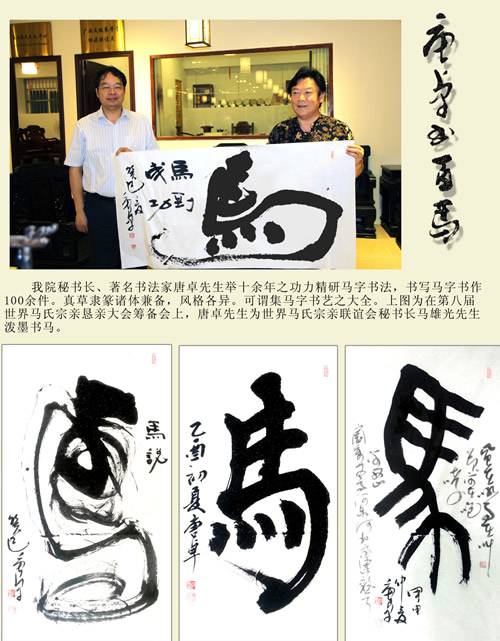 唐卓书百馬
馬到
成功
癸巳夏唐卓
我院秘书长、著名书法家唐卓先生举十余年之功力精研马字书法，书写马字书作
100余件。真草隶篆诸体兼备，风格各异。可谓集马字书艺之大全。上图为在第八届
世界马氏宗亲恳亲大会筹备会上，唐卓先生为世界马氏宗亲联谊会秘书长马雄光先生
泼墨书马。
馬説
癸巳唐卓
馬
乙酉初夏唐卓
馬
甲申
仲夏
唐卓